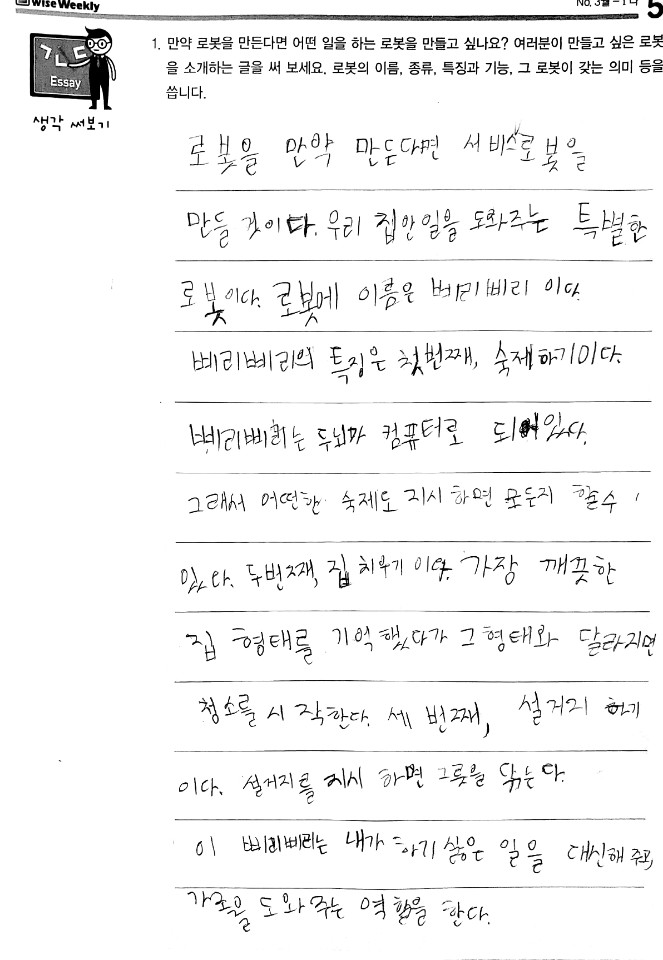 Wise Weekly
No. 3월 - 1 나 5
Essay
생각 써보기
1. 만약 로봇을 만든다면 어떤 일을 하는 로봇을 만들고 싶나요? 여러분이 만들고 싶은 로봇
을 소개하는 글을 써 보세요. 로봇의 이름, 종류, 특징과 기능, 그 로봇이 갖는 의미 등을
씁니다.
로봇을 만약 만든다면 서비스로봇을
만들 것이다. 우리 집안일을 도와주는 특별한
로봇이다. 로봇에 이름은 삐리삐리 이다.
삐리삐리의 특징은 첫번째, 숙제하기이다.
삐리삐리는 두뇌가 컴퓨터로 되어있다.
그래서 어떤한 숙제도 지시하면 모든지 할수
있다. 두번째, 집 치우기 이다. 가장 깨끗한
집 형태를 기억했다가 그 형태와 달라지면
청소를 시작한다. 세 번째, 설거지 하기
이다. 설거지를 지시 하면 그릇을 닦는다.
이 삐리삐리는 내가 하기 싫은 일을 대신해 주고,
가족을 도와 주는 역할을 한다.